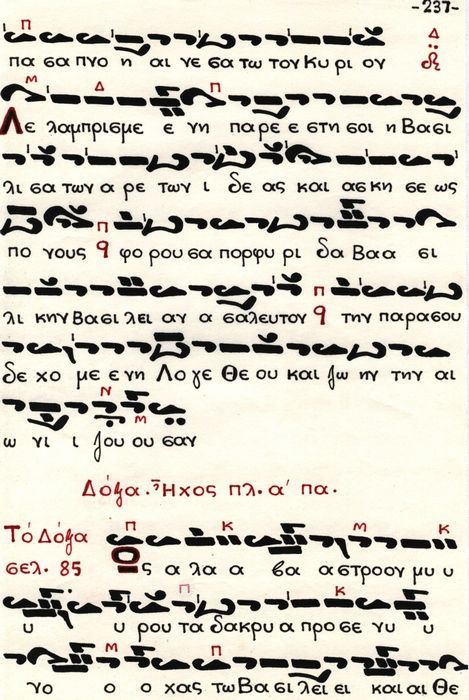 -237-
πα σα πνο η αι νε σα τω τον Κυ ρι ον
Λε λαμπρισμε ε νη πα ρε ε στη σοι η Βασι
λι σα των α ρε των ι δε ας και ασ κη σε ως
πο νους q φο ρου σα πορφυ ρι δα Βαα σι
λι κην Βασι λει αν α σαλευτον q την παρασου
δε χο με ε νη Λο γε Θε ου και ζω ην την αι
ω νι ι ζου ου σαν
Δόξα. Ἦχος πλ. α' πα.
Τό Δόξα
σελ. 85
Ως α λα α βα α στροον μυ υ
υ υ ρου τα δακρυ α προ σε νυ υ
νο ο ο χας τω Βα σι λει ει και αι Θε